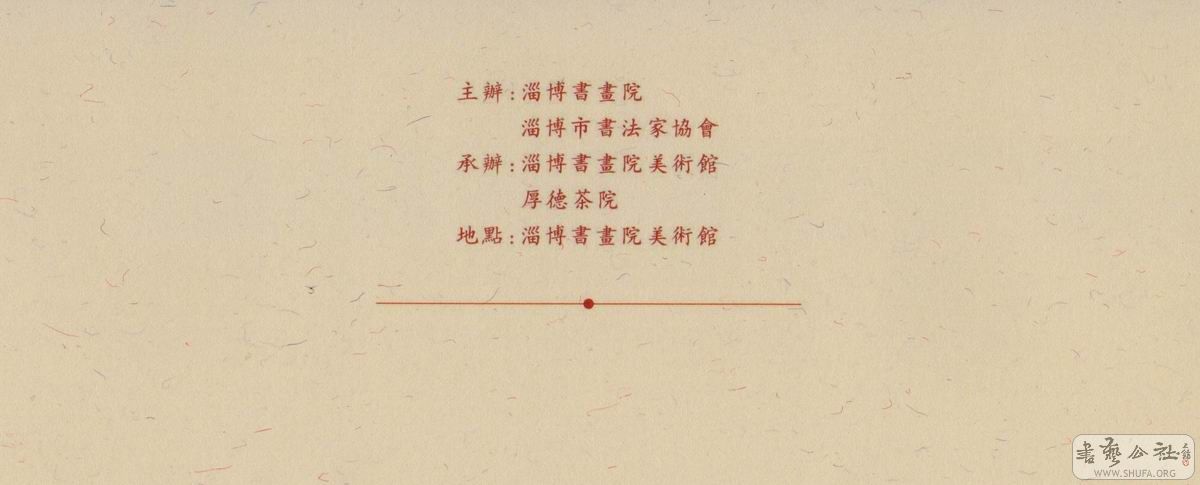 主辦:淄博書畫院
淄博市書法家協會
承辦:淄博書畫院美術館
厚德茶院
地點:淄博書畫院美術館
書藝公社
WWW.SHUFA.ORG